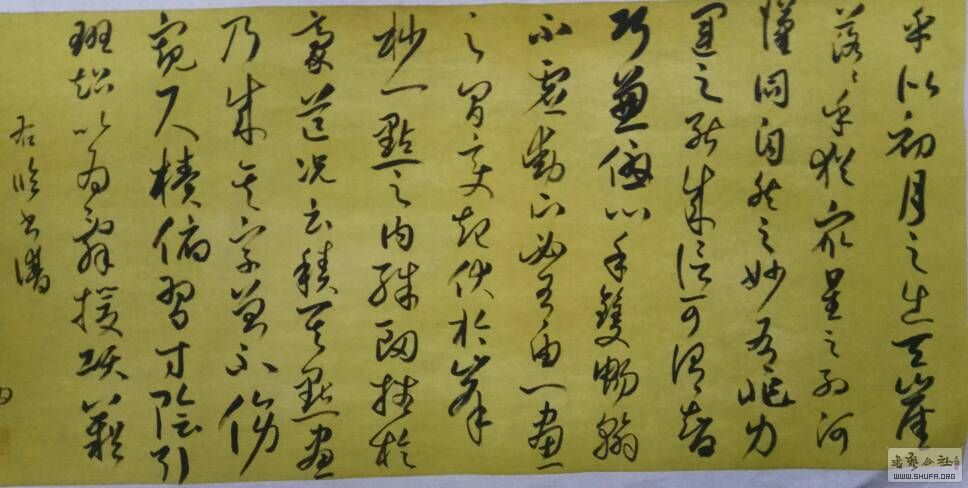 乎似初月之出天崖
落〻乎猶眾星之列河
漢同自然之妙有非力
運之能成信可謂智
巧兼優心手雙暢翰
不虛動下必有由一畫
之間變起伏於峯
杪一點之內殊衄挫於
豪芒況云積其點畫
乃成其字曾不傍
窺尺櫝俯習寸陰引
班超以為辭援項籍
右臨書譜
書藝公社
WWW.SHUFA.ORG